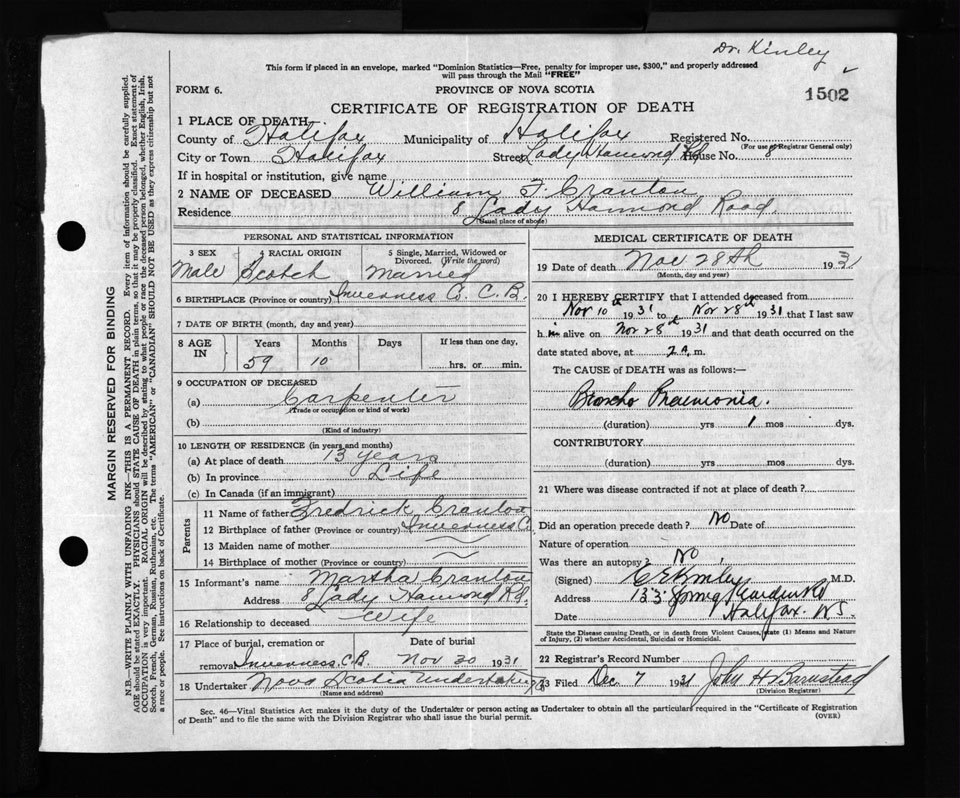 Dr. Kinley
This form if placed in an envelope, marked "Dominion Statistics—Free, penalty for improper use, $300," and properly addressed
will pass through the Mail "FREE"
FORM 6.
PROVINCE OF NOVA SCOTIA
1502
CERTIFICATE OF REGISTRATION OF DEATH
1 PLACE OF DEATH
County of Halifax Municipality of Halifax Registered No.
(For use of Registrar General only)
City or Town Halifax Street Lady Hamond Rd House No. 8
If in hospital or institution, give name
2 NAME OF DECEASED William F. Cranton
Residence 8 Lady Hamond Road.
(Usual place of abode)
PERSONAL AND STATISTICAL INFORMATION
3 SEX 4 RACIAL ORIGIN 5 Single, Married, Widowed or
Divorced. (Write the word)
Male Scotch Married
6 BIRTHPLACE (Province or country) Inverness Co. C.B.
7 DATE OF BIRTH (month, day and year)
8 AGE IN Years Months Days If less than one day,
59 10 hrs. or min.
9 OCCUPATION OF DECEASED
(a) Carpenter
(Trade or occupation or kind of work)
(b)
(Kind of industry)
10 LENGTH OF RESIDENCE (in years and months)
(a) At place of death 13 years
(b) In province Life
(c) In Canada (if an immigrant)
Parents
11 Name of father Fredrick Cranton
12 Birthplace of father (Province or country) Inverness C.
13 Maiden name of mother
14 Birthplace of mother (Province or country)
15 Informant's name Martha Cranton
Address 8 Lady Hamond Rd.
16 Relationship to deceased Wife
17 Place of burial, cremation or Date of burial
removal Inverness, C.B. Nov 30 1931
18 Undertaker Nova Scotia Undertaking
(Name and address)
MEDICAL CERTIFICATE OF DEATH
19 Date of death Nov 28th 1931
(Month, day and year)
20 I HEREBY CERTIFY that I attended deceased from
Nov 10th 1931 to Nov 28th 1931 that I last saw
h im alive on Nov 28th 1931 and that death occurred on the
date stated above, at 2 A. m.
The CAUSE of DEATH was as follows:—
Broncho Pneumonia.
(duration) yrs 1 mos dys.
CONTRIBUTORY
(duration) yrs. mos. dys.
21 Where was disease contracted if not at place of death?
Did an operation precede death? No Date of
Nature of operation
Was there an autopsy? No
(Signed) C E Kinley M.D.
Address 133 Young
Date Halifax. NS
State the Disease causing Death, or in death from Violent Causes, state (1) Means and Nature
of Injury, (2) whether Accidental, Suicidal or Homicidal.
22 Registrar's Record Number
23 Filed Dec. 7 1931 John H Barnstead
(Division Registrar)
Sec. 46—Vital Statistics Act makes it the duty of the Undertaker or person acting as Undertaker to obtain all the particulars required in the "Certificate of Registration
of Death" and to file the same with the Division Registrar who shall issue the burial permit.
(OVER)
MARGIN RESERVED FOR BINDING
N.B.—WRITE PLAINLY WITH UNFADING INK—THIS IS A PERMANENT RECORD. Every item of information should be carefully supplied.
AGE should be stated EXACTLY. PHYSICIANS should STATE CAUSE OF DEATH in plain terms, so that it may be properly classified. Exact statement of
OCCUPATION is very important. RACIAL ORIGIN will be described by stating to what people or race the deceased person belonged, whether English, Irish,
Scotch, French, German, Russian, Ruthenian, etc. The terms "AMERICAN" or "CANADIAN" SHOULD NOT BE USED as they express citizenship but not
a race or people. See instructions on back of Certificate.